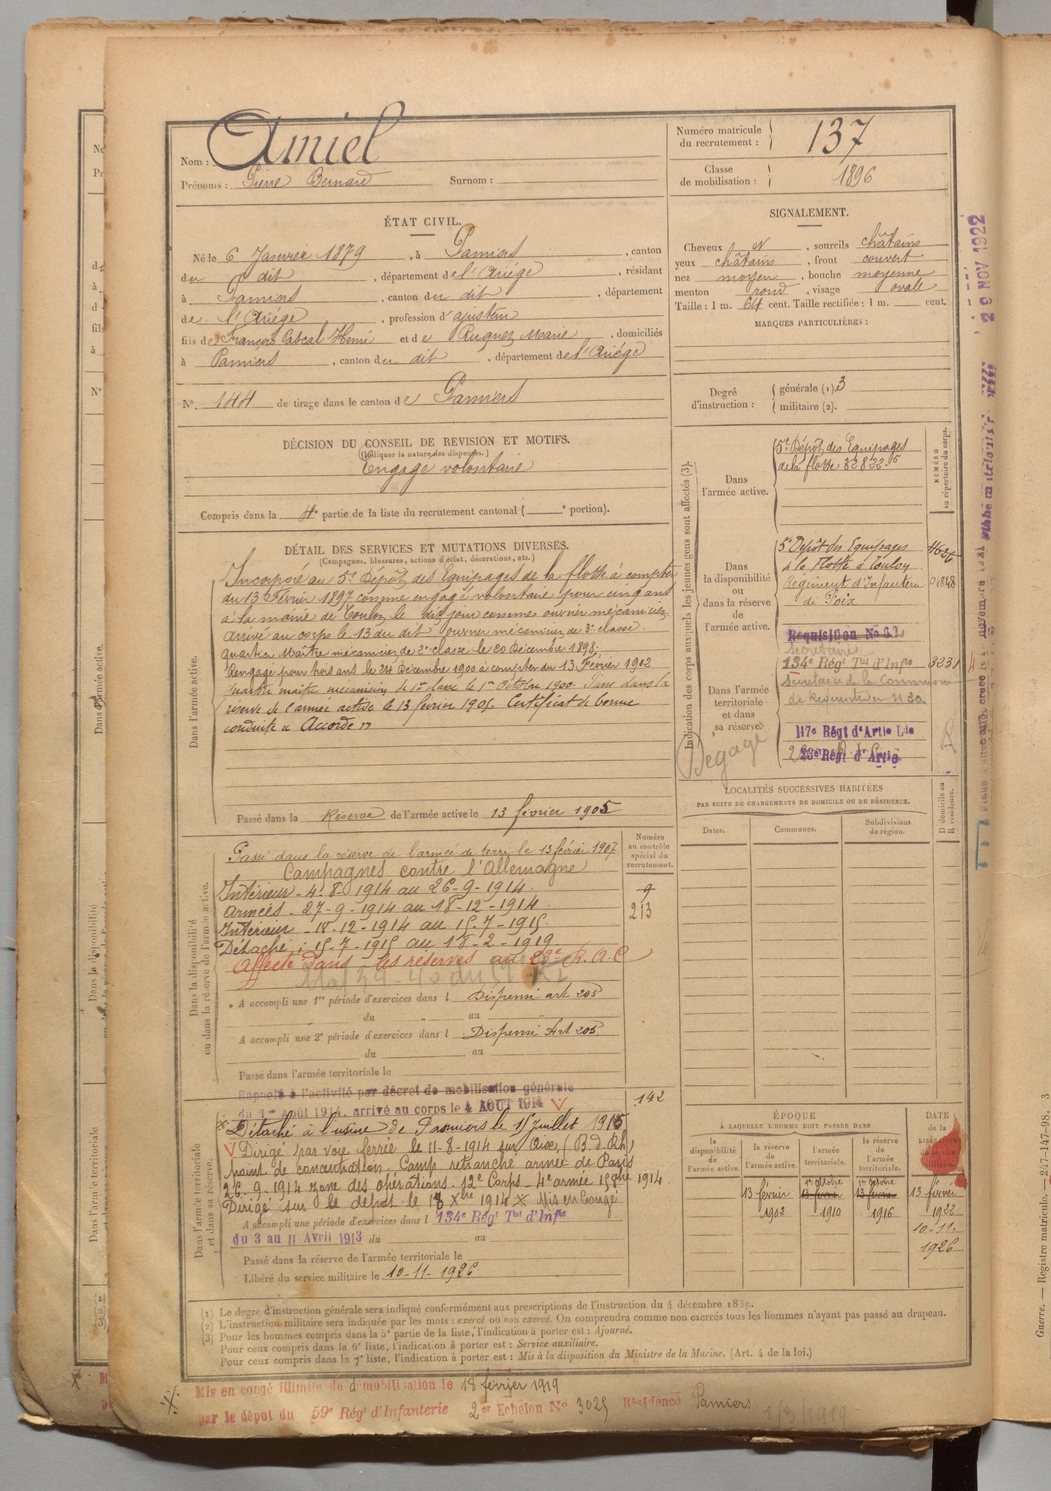 Nom : Amiel
Prénoms : Pierre Bernard Surnom :
Numéro matricule du recrutement : 137
Classe de mobilisation : 1896
ÉTAT CIVIL.
Né le 6 Janvier 1879, à Pamiers, canton
du dit, département de l'Ariège, résidant
à Pamiers, canton du dit, département
de l'Ariège, profession d'ajusteur
fils de François Pascal Henri et de Ruquez Marie, domiciliés
à Pamiers, canton du dit, département de l'Ariége
N° 144 de tirage dans le canton de Pamiers
SIGNALEMENT.
Cheveux et, sourcils châtains
yeux châtains, front couvert
nez moyen, bouche moyenne
menton rond, visage ovale
Taille : 1 m. 64 cent. Taille rectifiée : 1 m. cent.
MARQUES PARTICULIÈRES :
Degré d'instruction : générale (1). 3
militaire (2).
DÉCISION DU CONSEIL DE REVISION ET MOTIFS.
(Indiquer la nature des dispenses.)
Engagé volontaire
Compris dans la 4e partie de la liste du recrutement cantonal ( e portion).
DÉTAIL DES SERVICES ET MUTATIONS DIVERSES.
(Campagnes, blessures, actions d'éclat, décorations, etc.)
Dans l'armée active.
Incorporé au 5e Dépôt des Equipages de la flotte à compter
du 13 Février 1897 comme engagé volontaire pour cinq ans
à la mairie de Toulon le dit jour comme ouvrier mécanicien.
Arrivé au corps le 13 du dit ouvrier mécanicien de 3e classe.
Quartier Maître mécanicien de 2e classe le 20 Décembre 1898.
Rengagé pour trois ans le 24 Décembre 1900 à compter du 13 Février 1902
maître mécanicien de 1re classe le 1er Octobre 1900. Passé dans la
réserve de l'armée active le 13 février 1905. Certificat de bonne
conduite "Accordé"
Passé dans la Réserve de l'armée active le 13 février 1905
Indication des corps auxquels les jeunes gens sont affectés (3).
NUMÉRO au répertoire du corps.
Dans l'armée active.
5e Dépôt des Equipages
de la flotte 32832.5
Dans la disponibilité ou dans la réserve de l'armée active.
5e Dépôt des Equipages
de la Flotte à Toulon
Régiment d'Infanterie 01848
de Foix
Réquisition No
Secrétaire
134e Régt Tal d'Infie 3231
Dans l'armée territoriale et dans sa réserve
Secrétaire de la Commission
de Réquisition n 30
117e Régt d'Artie Lde
23e Régt d'Artie
Dégagé
LOCALITÉS SUCCESSIVES HABITÉES
PAR SUITE DE CHANGEMENTS DE DOMICILE OU DE RÉSIDENCE.
Dates. Communes. Subdivisions de région. D domicile ou R résidence.
Numéro au contrôle spécial du recrutement.
Dans la disponibilité ou dans la réserve de l'armée active.
Passé dans la réserve de l'armée de terre le 13 février 1907
Campagnes contre l'Allemagne
Intérieur - 4-8-1914 au 26-9-1914.
Armées - 27-9-1914 au 18-12-1914.
213
Intérieur - 18-12-1914 au 15-7-1915.
Détaché : 15-7-1915 au 18-2-1919
Affecté dans les réserves au 23e R.A.C
A accompli une 1re période d'exercices dans l Dispensé art 205
du au
A accompli une 2e période d'exercices dans l Dispensé Art 205.
du au
Passé dans l'armée territoriale le
Dans l'armée territoriale et dans sa réserve.
Rappelé à l'activité par décret de mobilisation générale
du 1er août 1914, arrivé au corps le 4 AOUT 1914
142
Détaché à l'usine de Pamiers le 15 Juillet 1915
Dirigé par voie ferrée le 11-8-1914 sur Oise, (B d Rh)
point de concentration. Camp retranché armée de Paris
26.9.1914 zone des opérations. 12e Corps - 4e armée
Dirigé sur le dépôt le 18 Xbre 1914 X Mis en Congé
A accompli une période d'exercices dans l 134e Régt Tal d'Infie
du 3 au 11 Avril 1913 du au
Passé dans la réserve de l'armée territoriale le
Libéré du service militaire le 10-11-1926
ÉPOQUE
À LAQUELLE L'HOMME DOIT PASSER DANS
la disponibilité de l'armée active.
la réserve de l'armée active.
l'armée territoriale.
la réserve de l'armée territoriale.
DATE de la
13 février 1902
1er octobre 13 février 1910
1er octobre 13 février 1916
13 février 1922
10-11-1926
(1) Le degré d'instruction générale sera indiqué conformément aux prescriptions de l'instruction du 4 décembre 1889.
(2) L'instruction militaire sera indiquée par les mots : exercé ou non exercé. On comprendra comme non exercés tous les hommes n'ayant pas passé au drapeau.
(3) Pour les hommes compris dans la 5e partie de la liste, l'indication à porter est : Ajourné.
Pour ceux compris dans la 6e liste, l'indication à porter est : Service auxiliaire.
Pour ceux compris dans la 7e liste, l'indication à porter est : Mis à la disposition du Ministre de la Marine. (Art. 4 de la loi.)
Mis en congé illimité de démobilisation le 18 février 1919
par le dépôt du 59e Régt d'Infanterie 2er Echelon No 3025 Résidence Pamiers
1/3/1919
29 NOV 1922
Guerre. — Registre matricule. — 247-147-98. 3